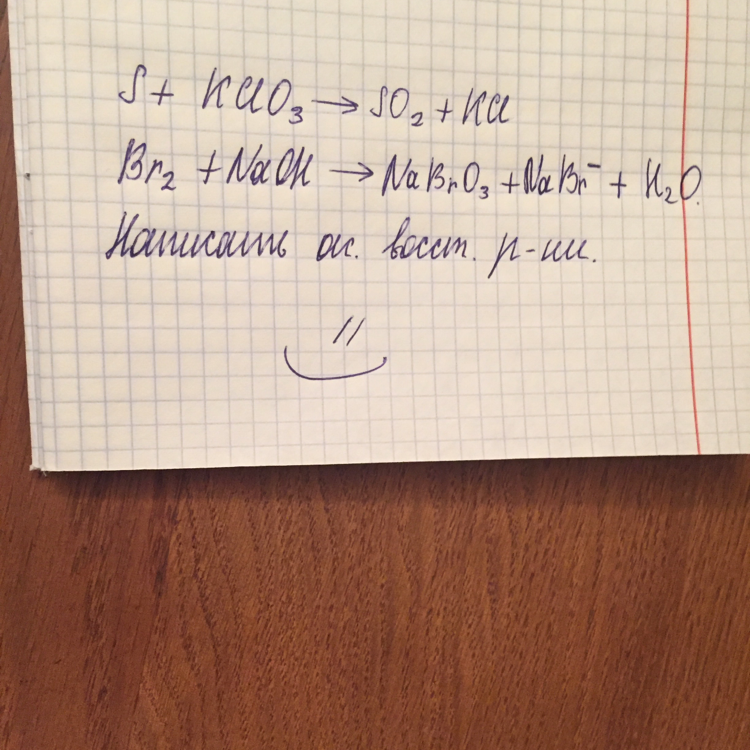 S + KClO₃ → SO₂ + KCl
Br₂ + NaOH → NaBrO₃ + NaBr⁻ + H₂O.
Написать ок. восст. р-ии.